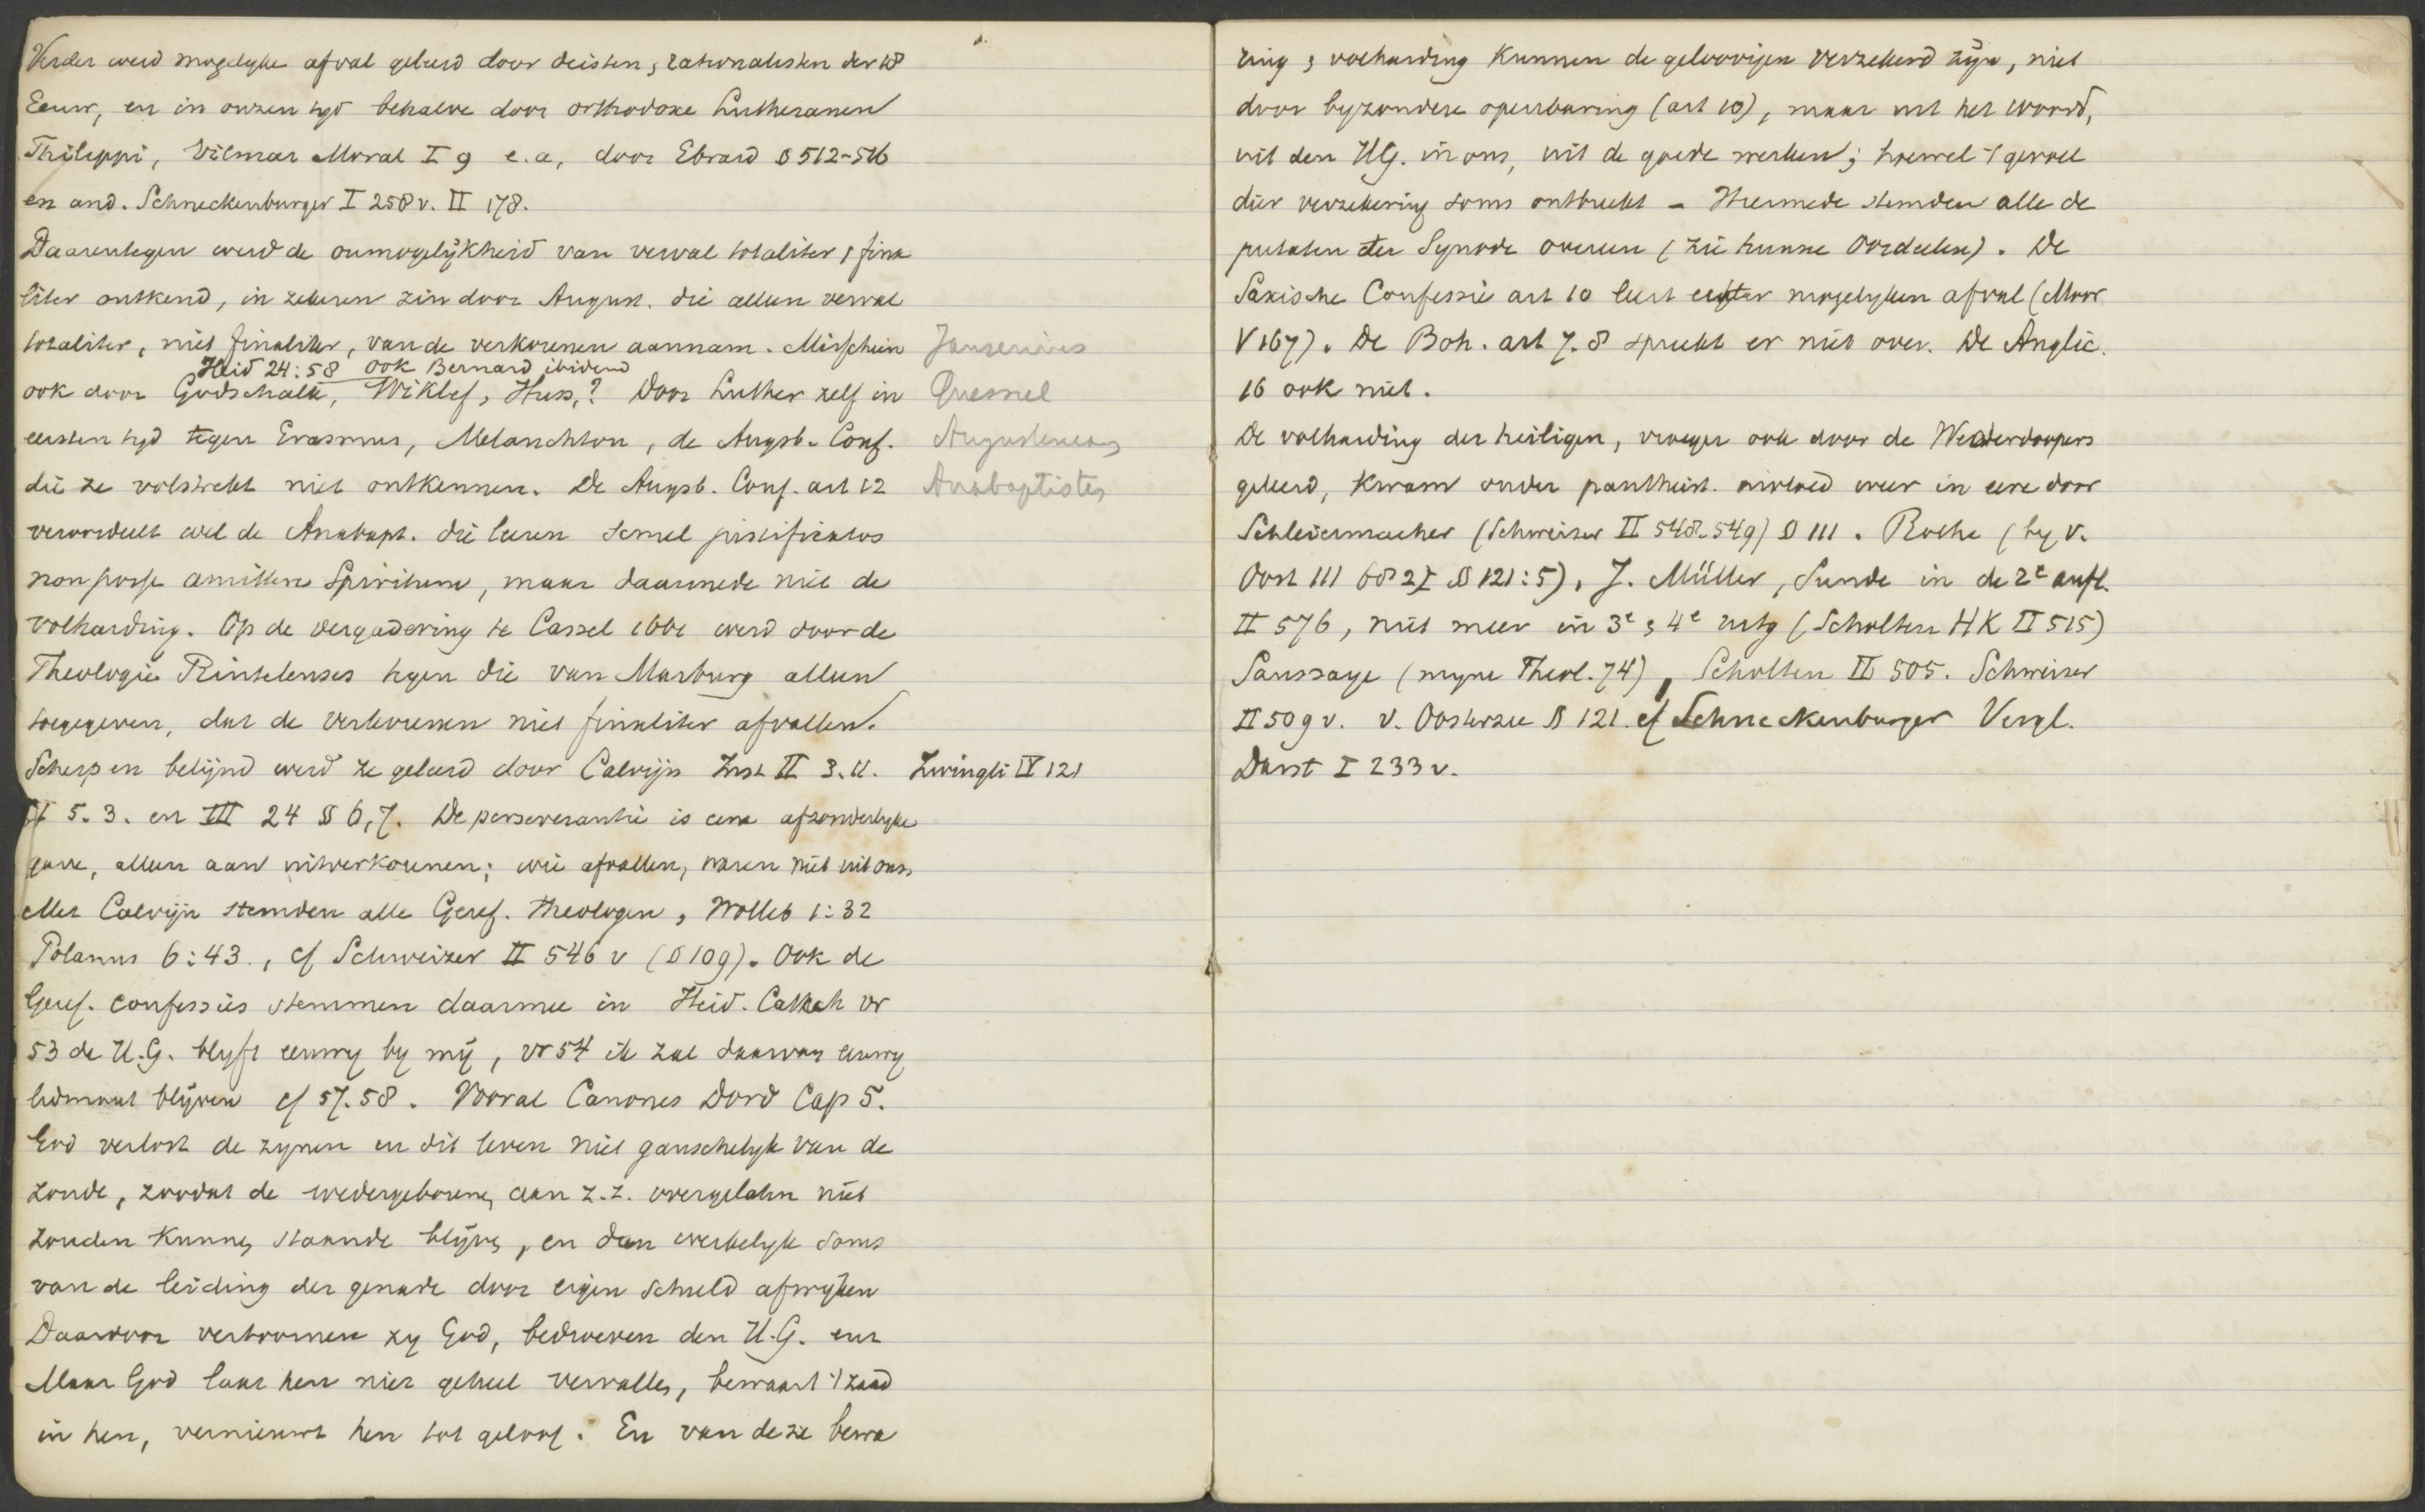 Verder werd mogelyke afval geleerd door deisten, rationalisten der 18
Eeuw, en in onzen tyd behalve door orthodoxe Lutheranen
Philippi, Vilmar Moral I 9 e.a, door Ebrard § 512-516
en and. Schneckenburger I 258 v. II 178.
Daarentegen werd de onmogelijkheid van verval totaliter, fina
liter ontkend, in zekeren zin door August. die alleen verval
totaliter, niet finaliter, van de verkorenen aannam. Misschien Jansenius
Heid 24:58 ook Bernard ibidem
ook door Godschalk, Wiklef, Huss,? Door Luther zelf in Quesnel
eersten tyd tegen Erasmus, Melanchton, de Augsb. Conf. Augustinus
die ze volstrekt niet ontkennen. De Augsb. Conf. art 12 Anabaptisten
veroordeelt wel de Anabapt. die leeren semel justificatos
non posse amittere Spiritum, maar daarmede niet de
volharding. Op de vergadering te Cassel 1661 werd door de
Theologie Rintelenses tegen die van Marburg alleen
toegegeven, dat de verkorenen niet finaliter afvallen.
Scherp en belijnd werd ze geleerd door Calvijn Inst II 3.11. Zwingli IV 121
II 5.3. en III 24 § 6,7. De perseverantie is eene afzonderlyke
gave, alleen aan uitverkorenen; wie afvallen, waren niet uit ons.
Met Calvijn stemden alle Geref. theologen, Wolleb 1:32
Polanus 6:43., cf Schweizer II 546 v (§ 109). Ook de
Geref. confessies stemmen daarmee in Heid. Catech vr
53 de H.G. blyft eeuwig by mij, vr 54 ik zal daarvan eeuwig
lidmaat blijven cf 57.58. Vooral Canones Dord Cap 5.
God verlost de zynen in dit leven niet ganschelyk van de
zonde, zoodat de wedergeborenen aan z.z. overgelaten niet
zouden kunnen staande blijven, en dan werkelyk soms
van de leiding der genade door eigen schuld afwyken
Daardoor vertoornen zy God, bedroeven den H.G. enz
Maar God laat hen niet geheel vervallen, bewaart 't zaad
in hen, vernieuwt hen tot geloof. En van deze bewa
ring, volharding kunnen de geloovigen verzekerd zijn, niet
door byzondere openbaring (art 10), maar uit het woord,
uit den H.G. in ons, uit de goede werken; hoewel 't gevoel
dier verzekering soms ontbreekt - Hiermede stemden alle de
putaten der Synode overeen (zie hunne Oordeelen). De
Saxische Confessie art 10 leert echter mogelyken afval (Moor
V 167). De Boh. art 7.8 spreekt er niet over. De Anglic.
16 ook niet.
De volharding der heiligen, vroeger ook door de Wederdoopers
geleerd, kwam onder pantheist. invloed weer in eere door
Schleiermacher (Schweizer II 548.549) § 111. Rothe (by v.
Oost III 682 § 121:5), J. Müller, Sünde in de 2e aufl.
II 576, niet meer in 3e, 4e uitg (Scholten HK II 515)
Saussaye (myne Theol. 74), Scholten II 505. Schweizer
II 509 v. v. Oosterzee § 121. cf Schneckenburger Vergl.
Darst I 233 v.